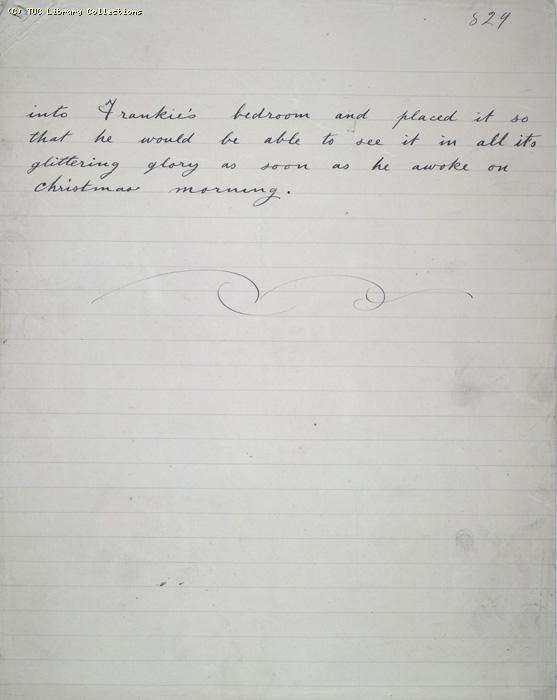 (C) TUC Library Collections
829
into Frankie's bedroom and placed it so
that he would be able to see it in all its
glittering glory as soon as he awoke on
Christmas morning.